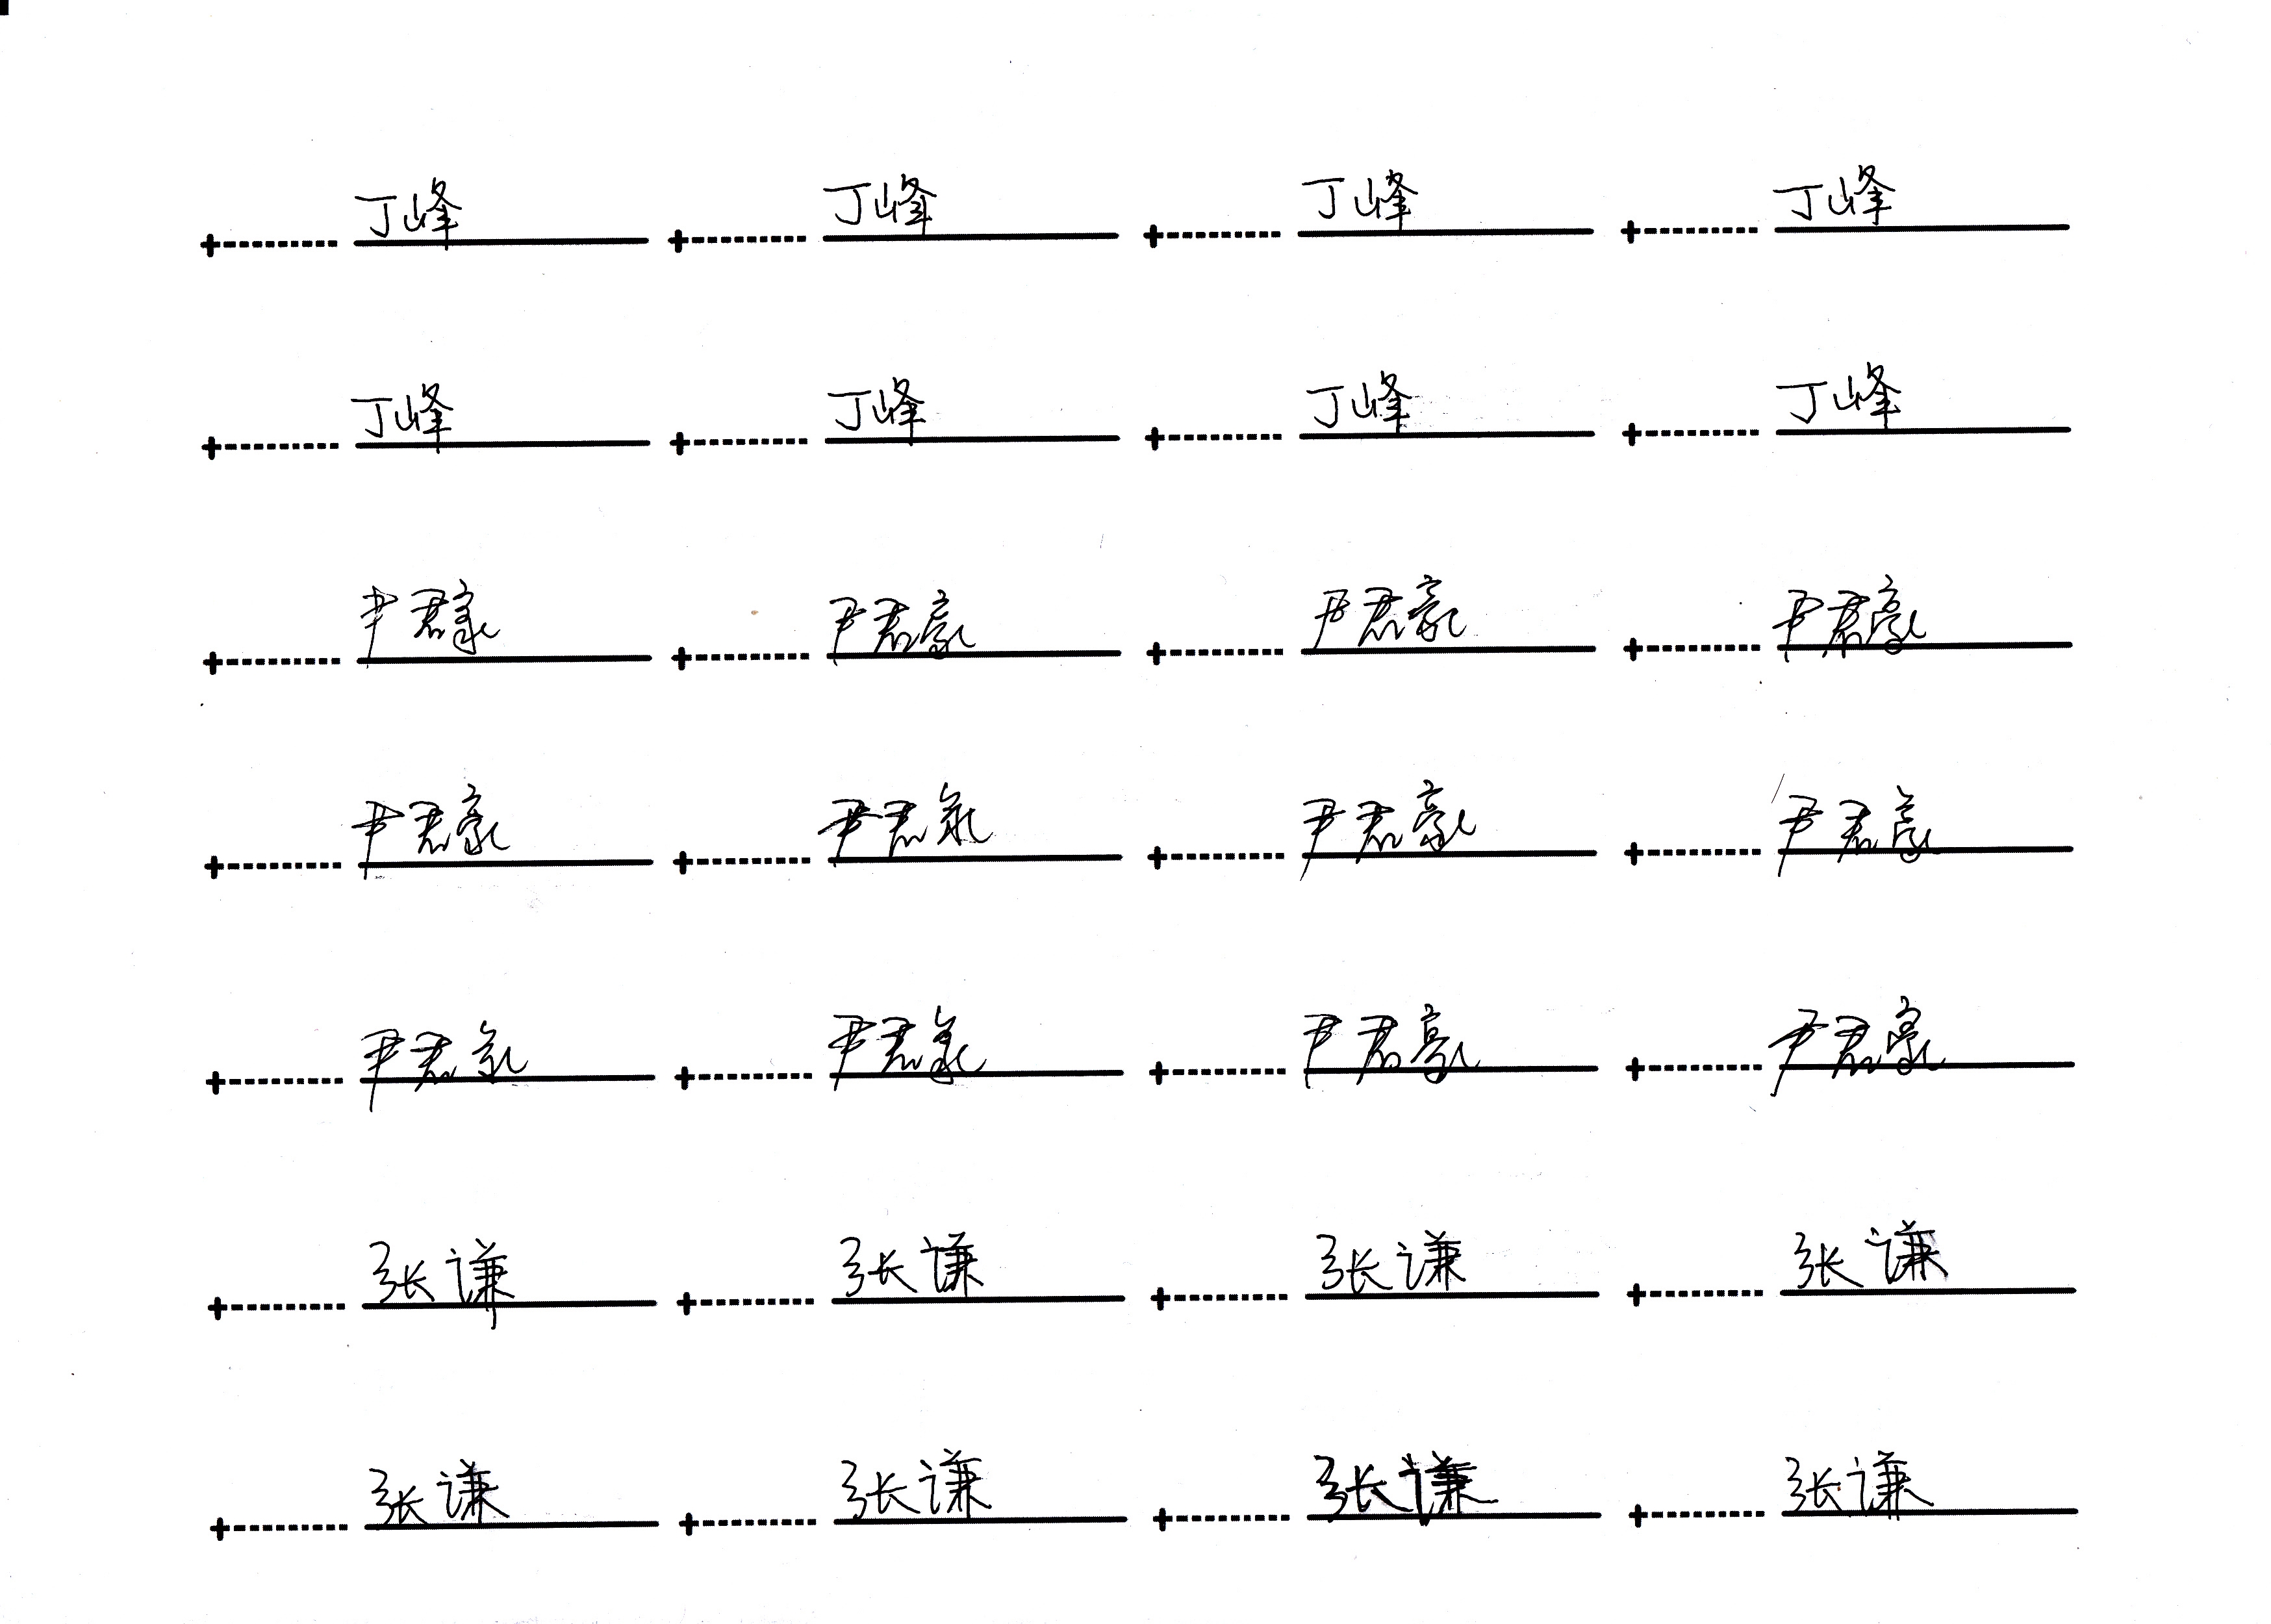 丁峰 丁峰 丁峰 丁峰
丁峰 丁峰 丁峰 丁峰
尹君豪 尹君豪 尹君豪 尹君豪
尹君豪 尹君豪 尹君豪 尹君豪
尹君豪 尹君豪 尹君豪 尹君豪
张谦 张谦 张谦 张谦
张谦 张谦 张谦 张谦